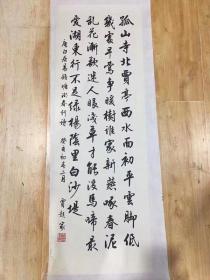 孤山寺北賈亭西水面初平雲脚低
幾處早鶯争暖樹誰家新燕啄春泥
亂花漸欲迷人眼淺草才能没馬蹄最
愛湖東行不足緑楊蔭里白沙堤
唐白居易錢塘湖春行詩 癸酉初春三月